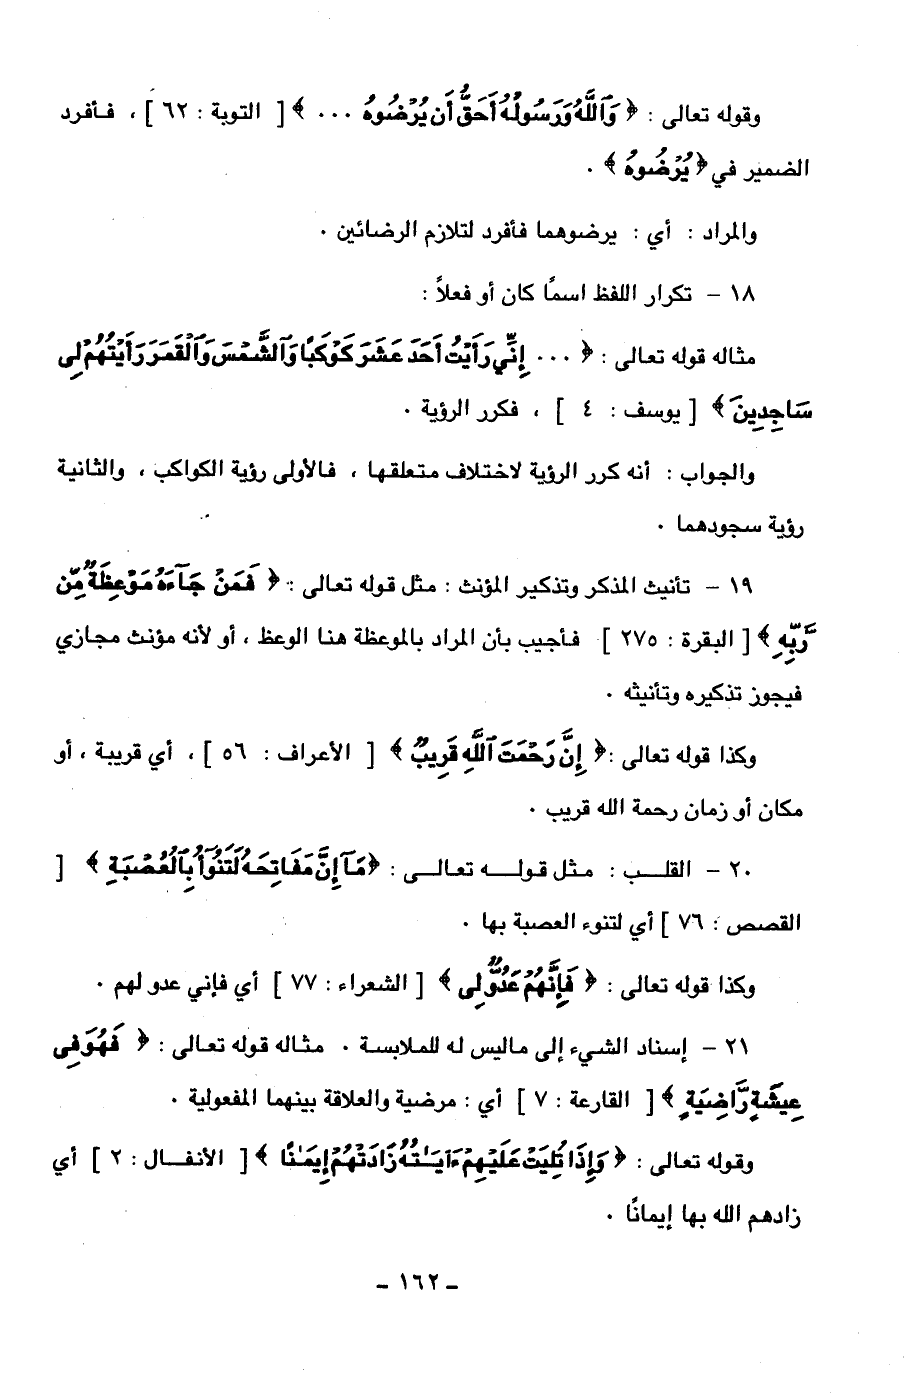 وقوله تعالى : ﴿ وَٱللَّهُ وَرَسُولُهُ أَحَقُّ أَن يُرْضُوهُ ... ﴾ [ التوبة : ٦٢ ] ، فأفرد
الضمير في ﴿ يُرْضُوهُ ﴾ .
والمراد : أي : يرضوهما فأفرد لتلازم الرضائين .
١٨ – تكرار اللفظ اسمًا كان أو فعلاً :
مثاله قوله تعالى : ﴿ ... إِنِّي رَأَيْتُ أَحَدَ عَشَرَ كَوْكَبًا وَٱلشَّمْسَ وَٱلْقَمَرَ رَأَيْتُهُمْ لِى
سَاجِدِينَ ﴾ [ يوسف : ٤ ] ، فكرر الرؤية .
والجواب : أنه كرر الرؤية لاختلاف متعلقها ، فالأولى رؤية الكواكب ، والثانية
رؤية سجودهما .
١٩ – تأنيث المذكر وتذكير المؤنث : مثل قوله تعالى : ﴿ فَمَنْ جَآءَهُ مَوْعِظَةٌ مِّن
رَّبِّهِ ﴾ [ البقرة : ٢٧٥ ] فأجيب بأن المراد بالموعظة هنا الوعظ ، أو لأنه مؤنث مجازي
فيجوز تذكيره وتأنيثه .
وكذا قوله تعالى : ﴿ إِنَّ رَحْمَتَ ٱللَّهِ قَرِيبٌ ﴾ [ الأعراف : ٥٦ ] ، أي قريبة ، أو
مكان أو زمان رحمة الله قريب .
٢٠ – القلب : مثل قوله تعالى : ﴿ مَآ إِنَّ مَفَاتِحَهُ لَتَنُوٓأُ بِٱلْعُصْبَةِ ﴾ [
القصص : ٧٦ ] أي لتنوء العصبة بها .
وكذا قوله تعالى : ﴿ فَإِنَّهُمْ عَدُوٌّ لِى ﴾ [ الشعراء : ٧٧ ] أي فإني عدو لهم .
٢١ – إسناد الشيء إلى ماليس له للملابسة . مثاله قوله تعالى : ﴿ فَهُوَ فِى
عِيشَةٍ رَّاضِيَةٍ ﴾ [ القارعة : ٧ ] أي : مرضية والعلاقة بينهما المفعولية .
وقوله تعالى : ﴿ وَإِذَا تُلِيَتْ عَلَيْهِمْ ءَايَـٰتُهُ زَادَتْهُمْ إِيمَـٰنًا ﴾ [ الأنفال : ٢ ] أي
زادهم الله بها إيمانًا .
– ١٦٢ –